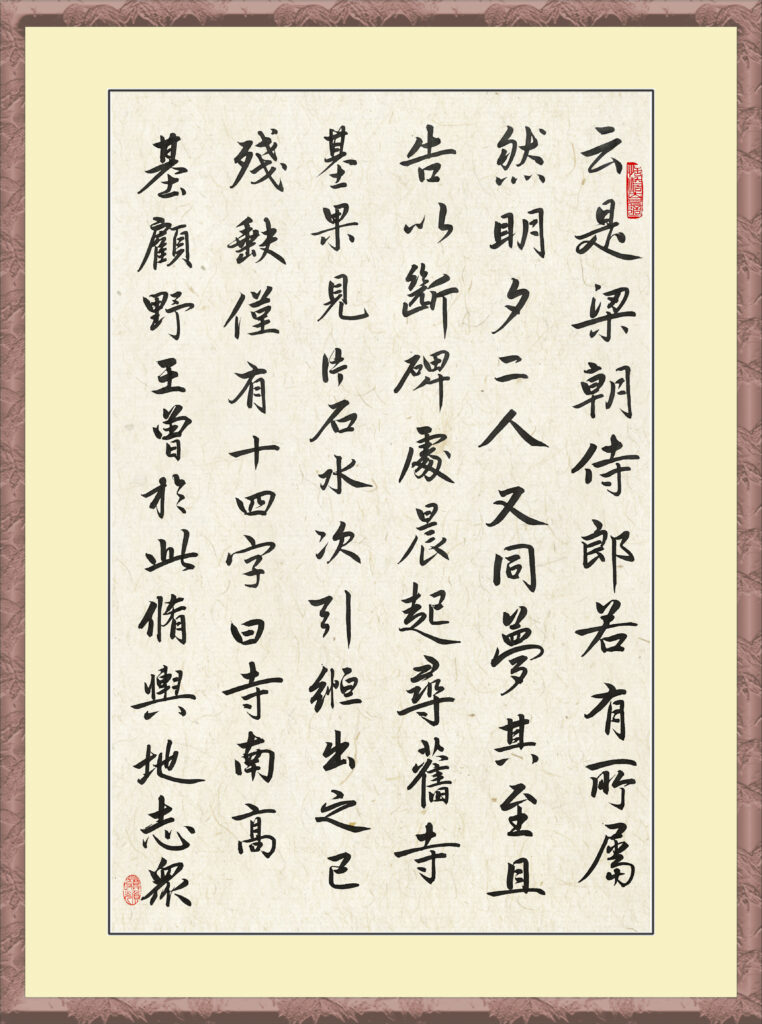 云是梁朝侍郎若有所屬
然明夕二人又同夢其至且
告以斷碑處晨起尋舊寺
基果見片石水次引縆出之已
殘缺僅有十四字曰寺南高
基顧野王曾於此脩輿地志眾